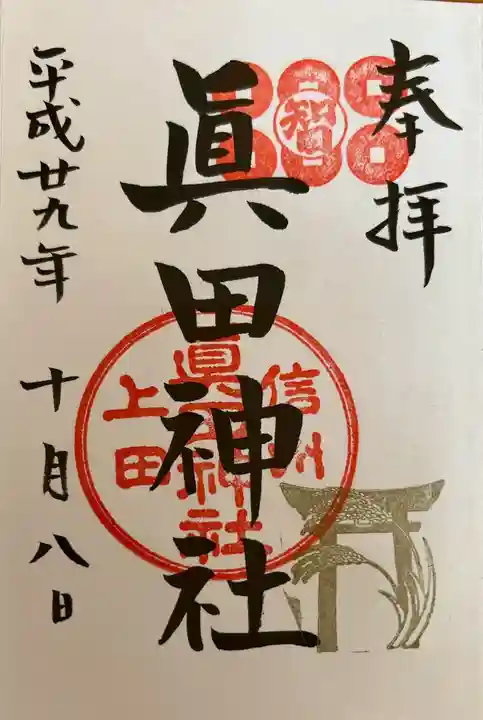 奉拝
智
眞田神社
信州
眞田神社
上田
平成廿九年 十月八日